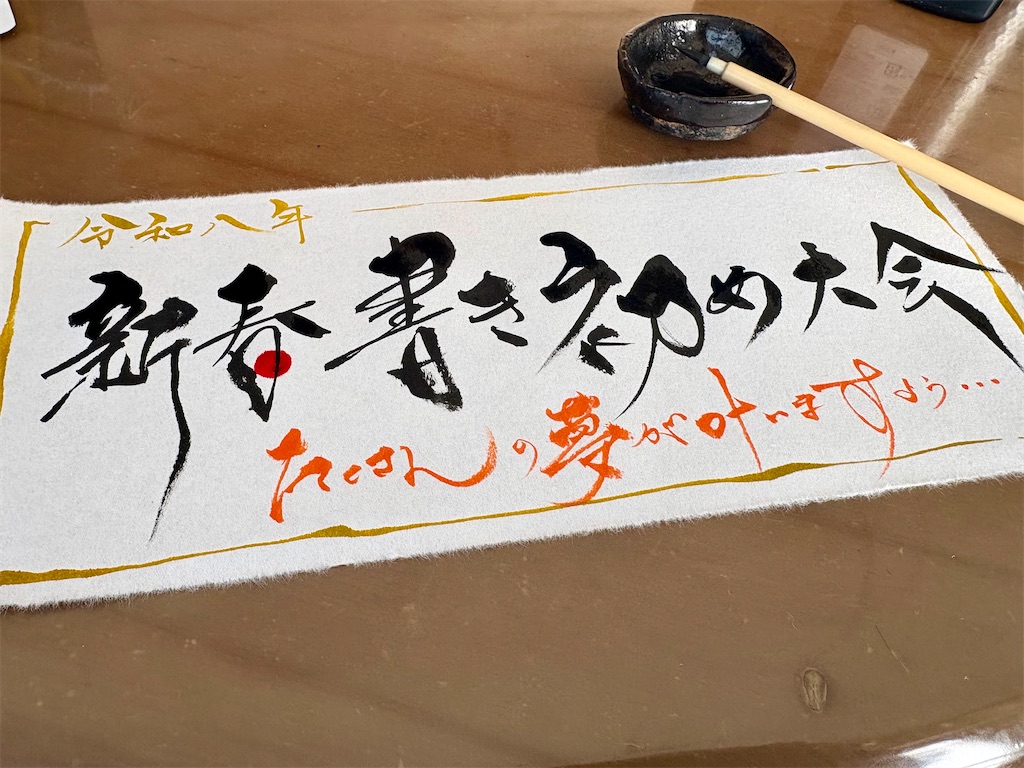 令和八年
新春書き初め大会
たくさんの夢が叶いますよう…